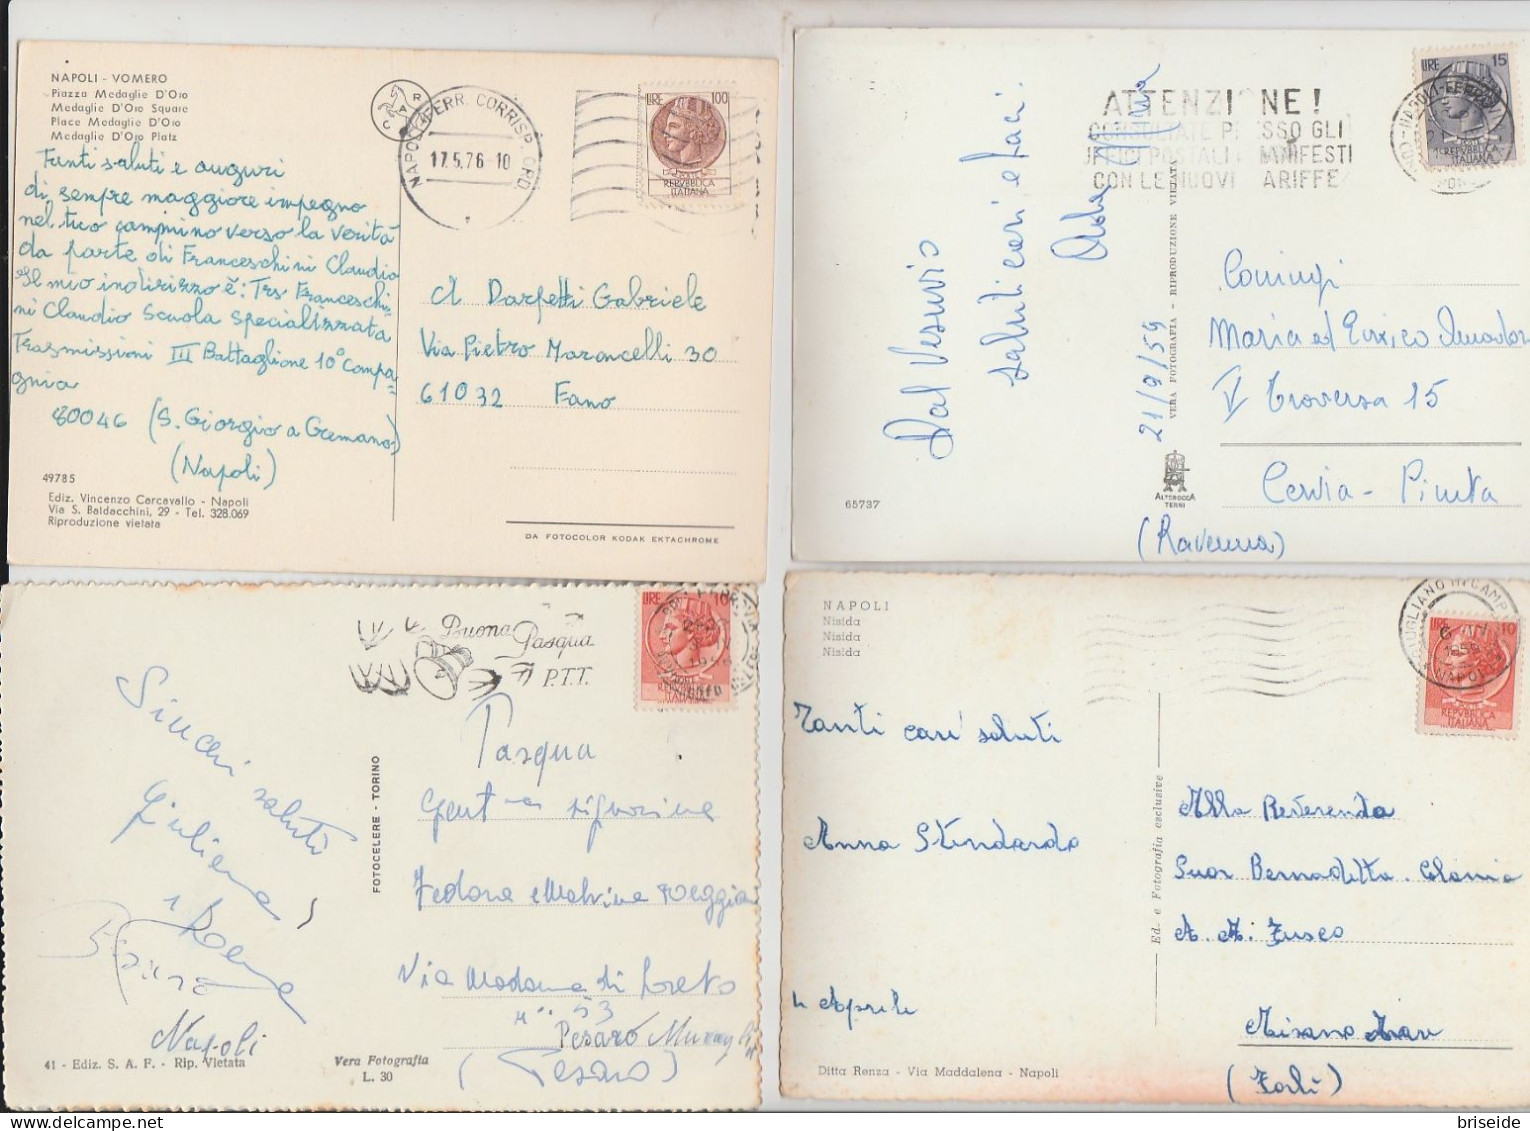 NAPOLI - VOMERO
Piazza Medaglie D'Oro
Medaglie D'Oro Square
Place Medaglie D'Oro
Medaglie D'Oro Platz
C A R
NAPOLI FERR. CORRISP. ORD.
17.5.76-10
LIRE 100
REPVBBLICA
ITALIANA
Tanti saluti e auguri
di sempre maggiore impegno
nel tuo cammino verso la verità
da parte di Franceschini Claudio
Il mio indirizzo è: Trs Franceschi=
ni Claudio Scuola Specializzata
Trasmissioni III Battaglione 10° Compa=
gnia
80046 (S. Giorgio a Cremano)
(Napoli)
A Darpetti Gabriele
Via Pietro Maroncelli 30
61032 Fano
49785
Ediz. Vincenzo Carcavallo - Napoli
Via S. Baldacchini, 29 - Tel. 328.069
Riproduzione vietata
DA FOTOCOLOR KODAK EKTACHROME
LIRE 15
REPVBBLICA
ITALIANA
NAPOLI-FERROVIA
ATTENZIONE!
CONSULTATE PRESSO GLI
UFFICI POSTALI I MANIFESTI
CON LE NUOVE TARIFFE
Dal Vesuvio
saluti cari e baci.
21/9/59
VERA FOTOGRAFIA - RIPRODUZIONE VIETATA
ALTEROCCA
TERNI
65737
Coniugi
Maria ed Enrico
V Traversa 15
Cervia - Pineta
(Ravenna)
Buona
Pasqua
P.T.T.
LIRE 10
REPVBBLICA
ITALIANA
Sinceri saluti
Giuliana
Napoli
FOTOCELERE - TORINO
Pasqua
Gent me signorine
Fedora e Malvina
Via Madonna di Loreto
n° 53
Pesaro
(Pesaro)
41 - Ediz. S. A. F. - Rip. Vietata
Vera Fotografia
L. 30
NAPOLI
Nisida
Nisida
Nisida
GIUGLIANO IN CAMP
NAPOLI
LIRE 10
REPVBBLICA
ITALIANA
Tanti cari saluti
Anna Stendardo
4 Aprile
Ed. e Fotografia esclusive
Alla Reverenda
Suor Bernadetta. Colonia
Misano Mare
(Forlì)
Ditta Renza - Via Maddalena - Napoli